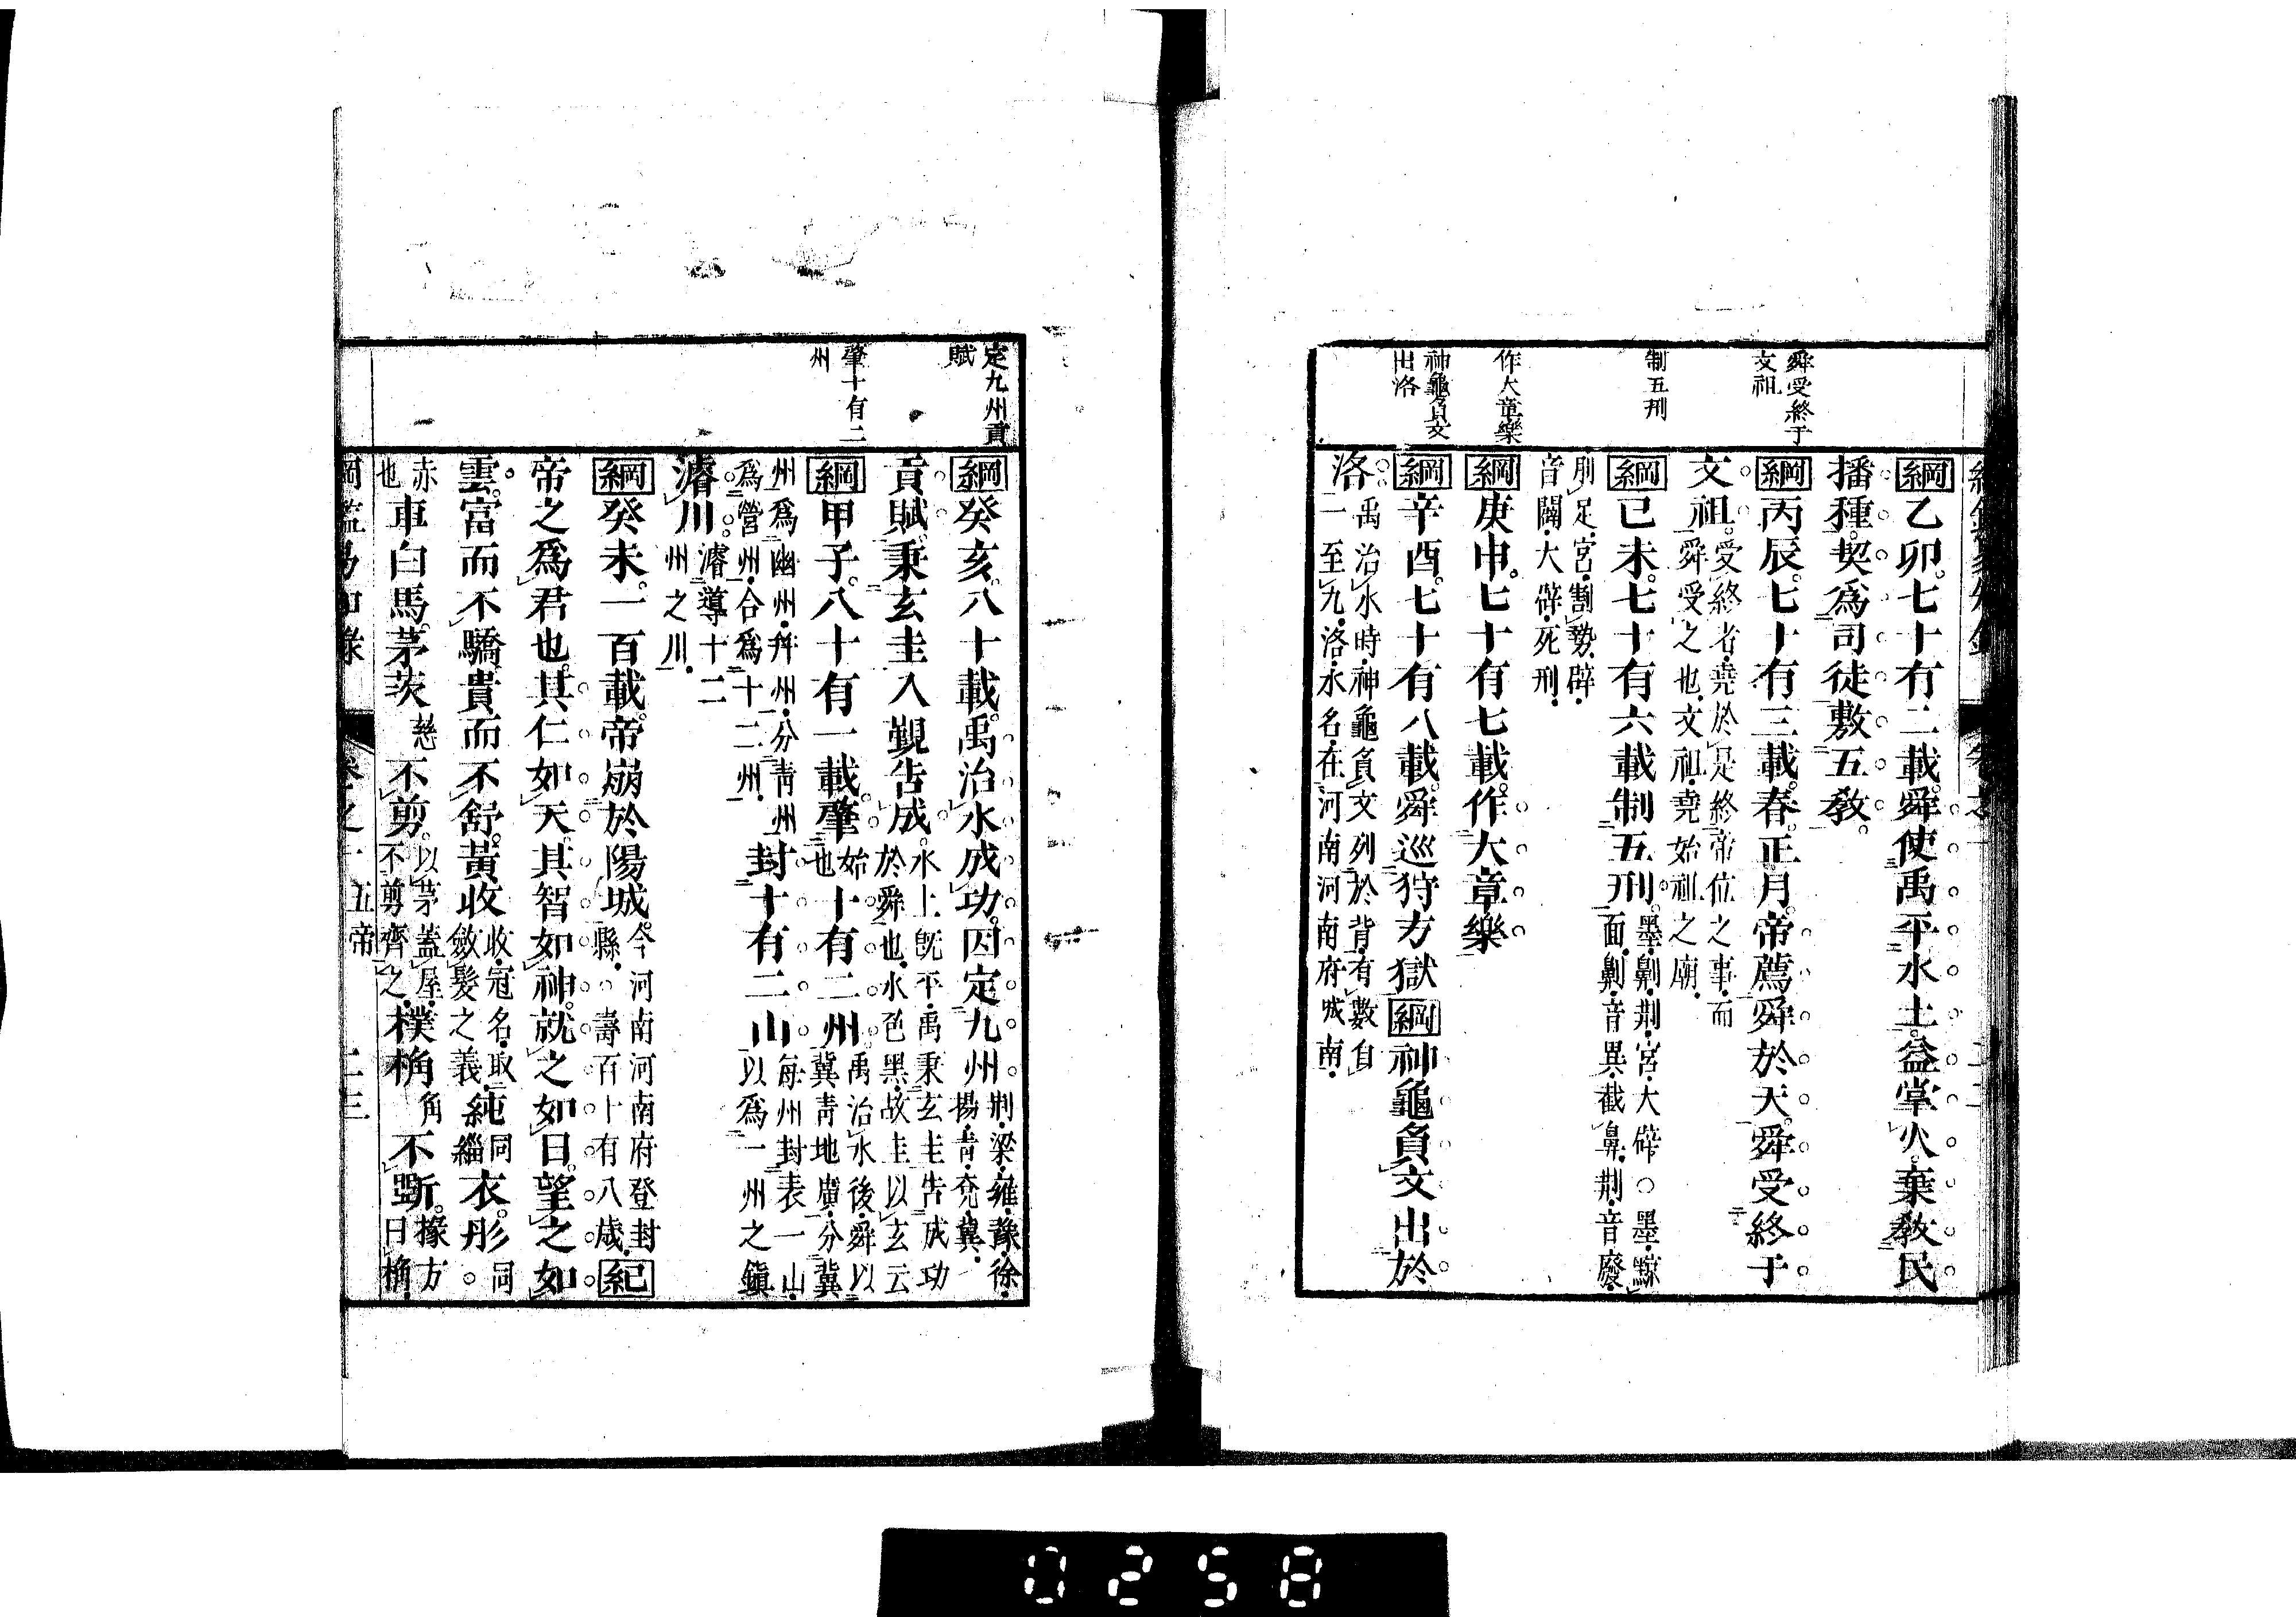 舜受終于
文祖
制五刑
作大章樂
神龜負文
出洛
綱乙卯七十有二載舜使禹平水土益掌火棄敎民
播種契爲司徒敷五敎
綱丙辰七十有三載春正月帝薦舜於天舜受終于
文祖受終者堯於是終帝位之事而
舜受之也文祖堯始祖之廟
綱己未七十有六載制五刑墨劓剕宮大辟○墨黥
面劓音異截鼻剕音廢
刖足宮割勢辟
音闢大辟死刑
綱庚申七十有七載作大章樂
綱辛酉七十有八載舜巡狩方獄綱神龜負文出於
洛禹治水時神龜負文列於背有數自
一至九洛水名在河南河南府城南
定九州貢
賦
肇十有二
州
綱癸亥八十載禹治水成功因定九州荆梁雍豫徐
揚靑兗冀
貢賦秉玄圭入覲告成水土旣平禹秉玄圭告成功
於舜也水色黑故圭以玄云
綱甲子八十有一載肇始
也十有二州禹治水後舜以
冀靑地廣分冀
州爲幽州幷州分靑州
爲營州合爲十二州封十有二山每州封表一山
以爲一州之鎭
濬川濬導十二
州之川
綱癸未一百載帝崩於陽城今河南河南府登封
縣○壽百十有八歲紀
帝之爲君也其仁如天其智如神就之如日望之如
雲富而不驕貴而不舒黃收收冠名取
斂髮之義純同
緇衣彤同
赤
也車白馬茅茨慈不剪以茅蓋屋
不剪齊之樸桷角不斲椽方
曰桷
卷之一 五帝 二三